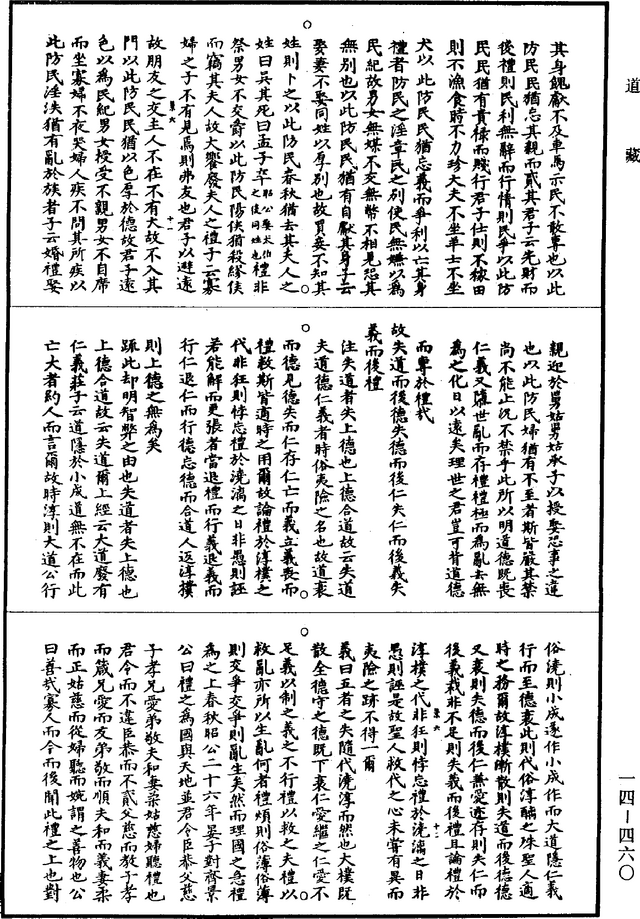 道藏
其身餽獻不及車馬示民不敢專也以此
防民民猶忘其親而貳其君子云先財而
後禮則民利無辭而行情則民爭以此防
民民猶有貴祿而賤行君子仕則不稼田
則不漁食時不力珍大夫不坐羊士不坐
犬以此防民民猶忘義而爭利以亡其身
禮者防民之淫章民之別使民無嫌以為
民紀故男女無媒不交無幣不相見恐其
無別也以此防民民猶有自獻其身子云
娶妻不娶同姓以厚別也故買妾不知其
姓則卜之以此防民春秋猶去其夫人之
姓曰吳其死曰孟子卒昭公娶太伯之後同姓也禮非
祭男女不交爵以此防民陽侯猶殺繆侯
而竊其夫人故大饗廢夫人之禮子云寡
婦之子不有見焉則弗友也君子以避遠
故朋友之交主人不在不有大故不入其
門以此防民民猶以色厚於德故君子遠
色以為民紀男女授受不親男女不自席
而坐寡婦不夜哭婦人疾不問其所疾以
此防民淫泆猶有亂於族者子云婚禮娶
親迎於男姑男姑承子以授娶恐事之違
也以此防民婦猶有不至者斯皆嚴其禁
尚不能止況不禁乎此所以明道德既喪
仁義又隳世亂而存禮禮極而為亂去無
為之化日以遠矣理世之君豈可背道德
而專於禮哉
故失道而後德失德而後仁失仁而後義失
義而後禮
注失道者失上德也上德合道故云失道
夫道德仁義者時俗夷險之名也故道衰
而德見德失而仁存仁亡而義立義喪而
禮救斯皆適時之用爾故論禮於淳樸之
代非狂則悖忘禮於澆漓之日非愚則誣
若能解而更張者當退禮而行義退義而
行仁退仁而行德忘德而合道人返淳樸
則上德之無為矣
疏此却明智弊之由也失道者失上德也
上德合道故云失道爾上經云大道廢有
仁義莊子云道隱於小成道無不在而此
亡大者約人而言爾故時淳則大道公行
俗澆則小成遂作小成作而大道隱仁義
行而至德衰此則代俗淳醨之殊聖人適
時之務爾故淳樸漸散則失道而後德德
又衰則失德而後仁兼愛迹存則失仁而
後義裁非不足則失義而後禮且論禮於
淳樸之代非狂則悖忘禮於澆漓之日非
愚則誣是故聖人救代之心未嘗有異而
夷險之跡不得一爾
義曰五者之失隨代澆淳而然也大樸既
散全德守之德既下衰仁愛繼之仁愛不
足義以制之義之不行禮以救之夫禮以
救亂亦所以生亂何者禮煩則俗薄俗薄
則交爭交爭則亂生矣然而理國之急禮
為之上春秋昭公二十六年晏子對齊景
公曰禮之為國與天地並君令臣恭父慈
子孝兄愛弟敬夫和妻柔姑慈婦聽禮也
君令而不違臣恭而不貳父慈而教子孝
而箴兄愛而友弟敬而順夫和而義妻柔
而正姑慈而從婦聽而婉謂之善物也公
曰善哉寡人而今而後聞此禮之上也對
一四—四六〇